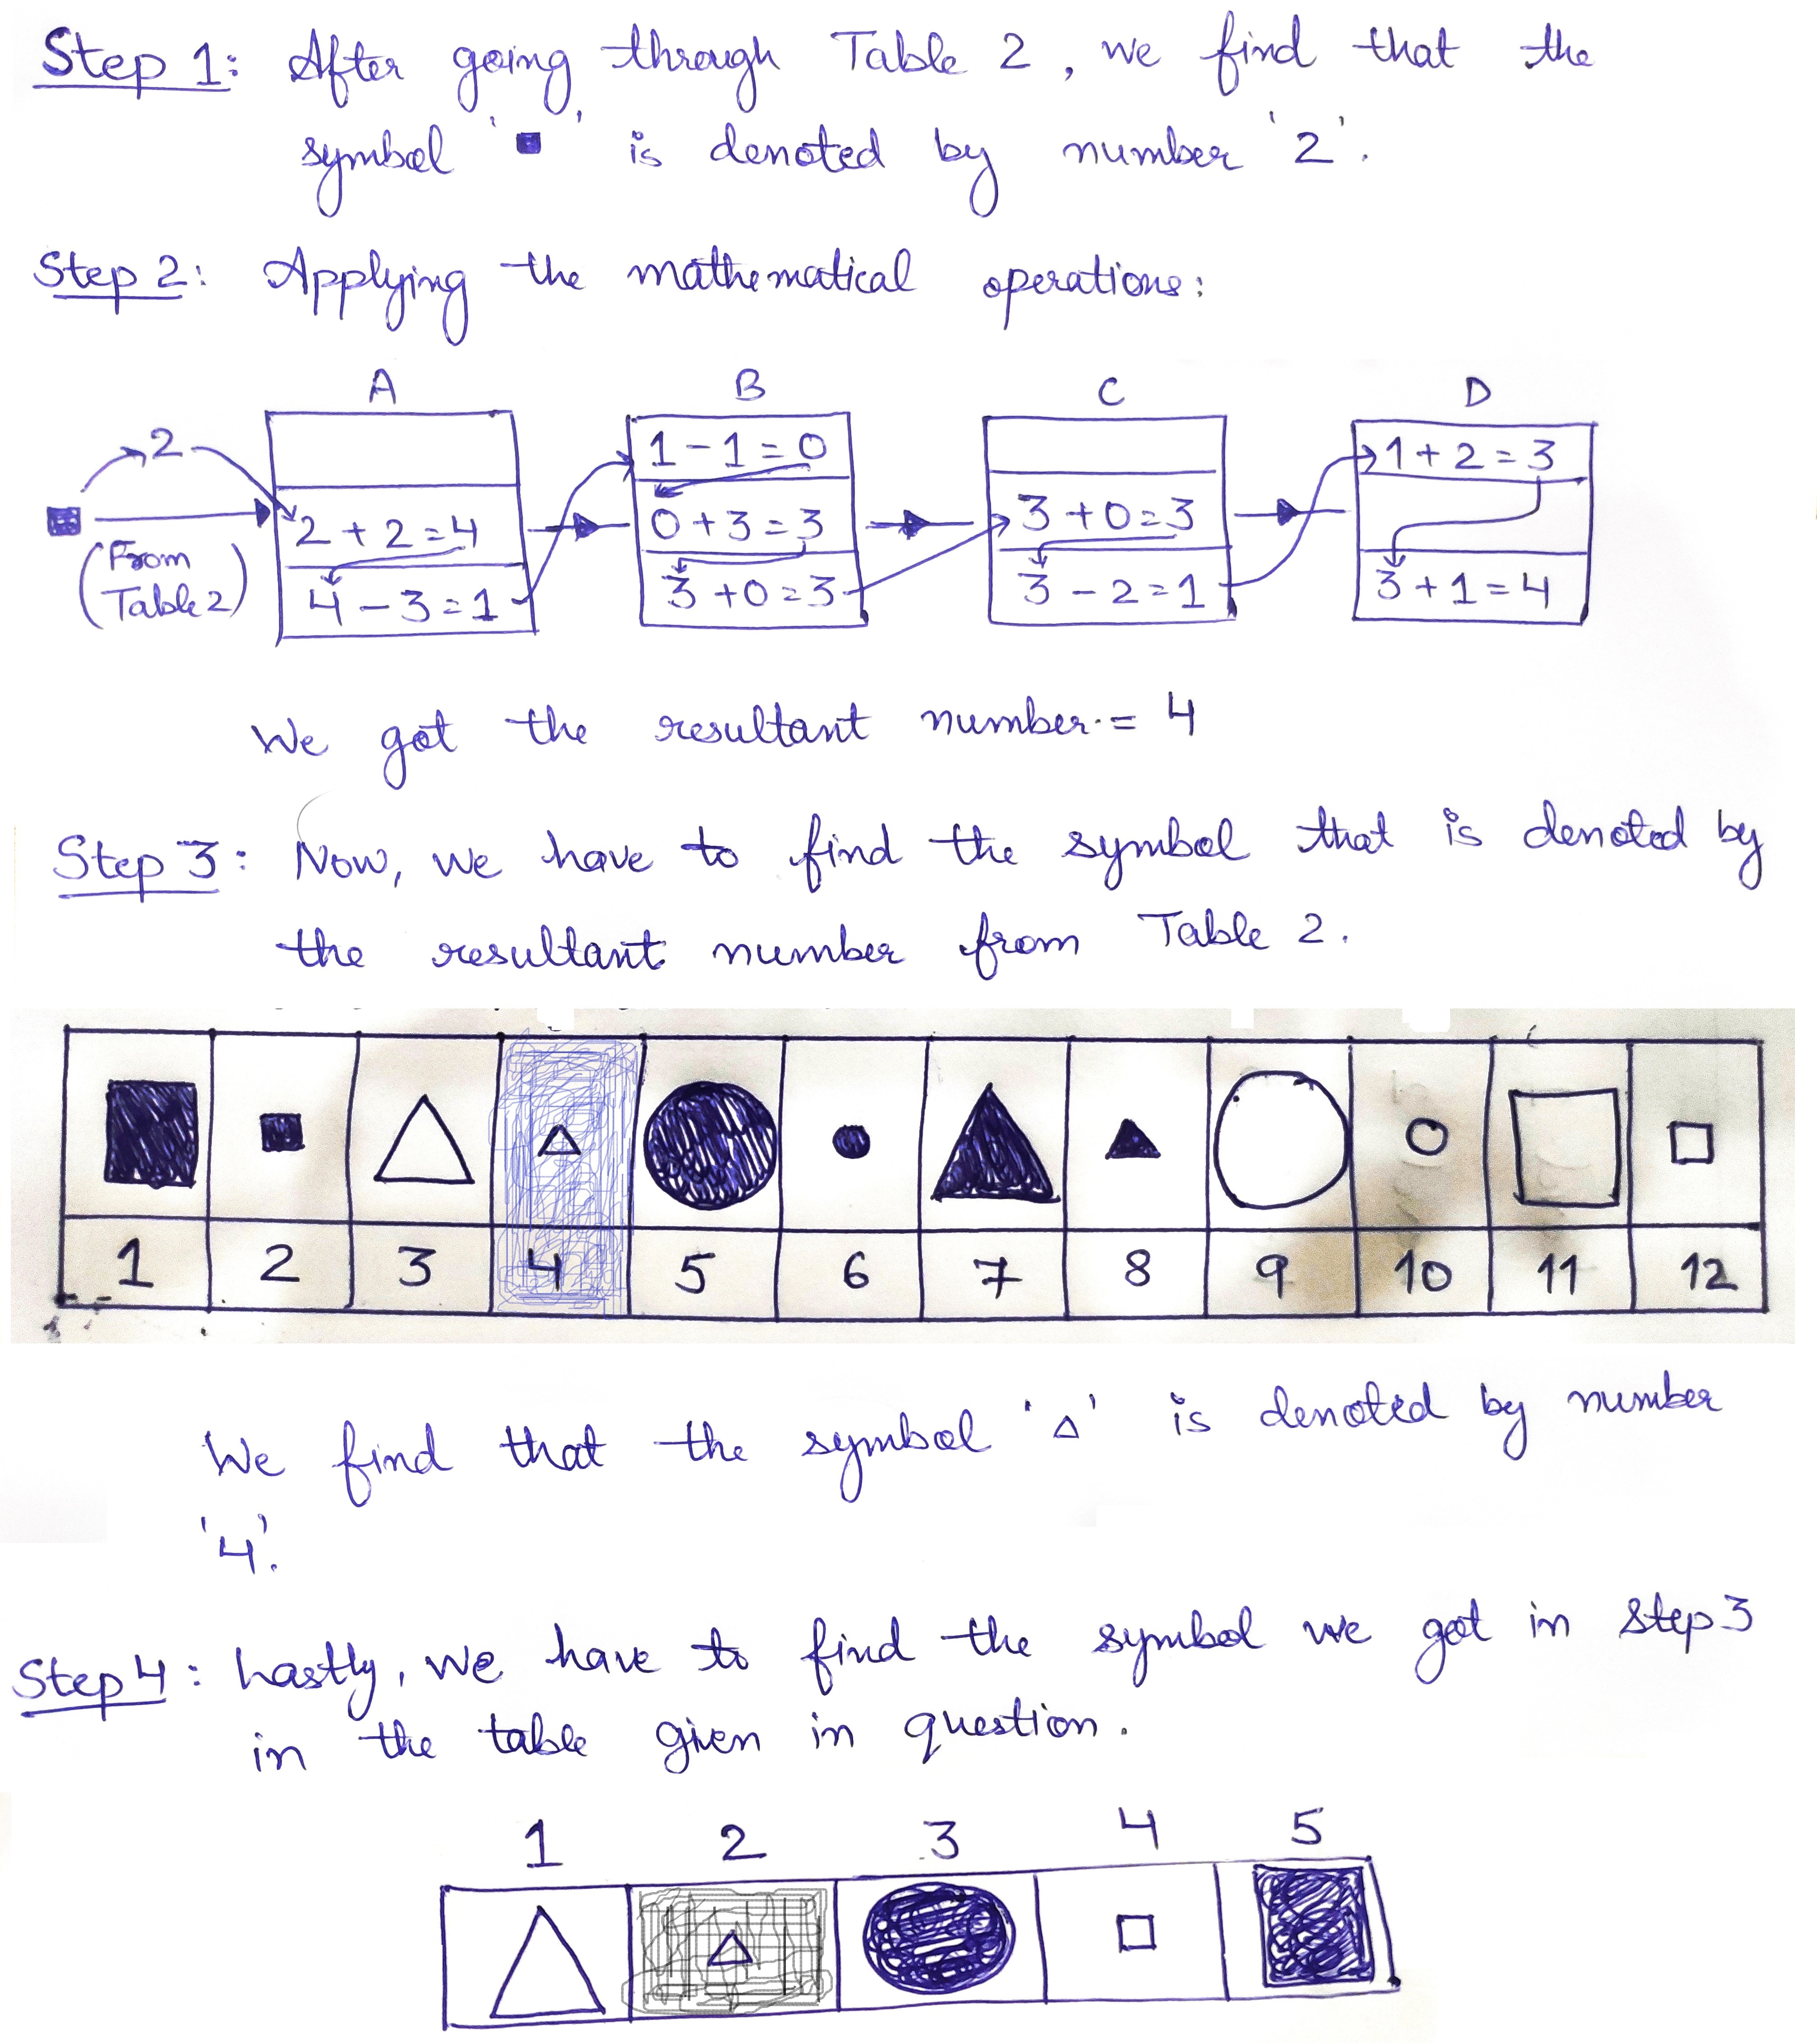 Step 1: After going through Table 2, we find that the
symbol '■' is denoted by number '2'.
Step 2: Applying the mathematical operations:
A B C D
2
1 - 1 = 0
1 + 2 = 3
2 + 2 = 4
0 + 3 = 3
3 + 0 = 3
(From
Table 2)
4 - 3 = 1
3 + 0 = 3
3 - 2 = 1
3 + 1 = 4
We got the resultant number = 4
Step 3: Now, we have to find the symbol that is denoted by
the resultant number from Table 2.
1 2 3 4 5 6 7 8 9 10 11 12
We find that the symbol '△' is denoted by number
'4'.
Step 4: Lastly, we have to find the symbol we got in step 3
in the table given in question.
1 2 3 4 5